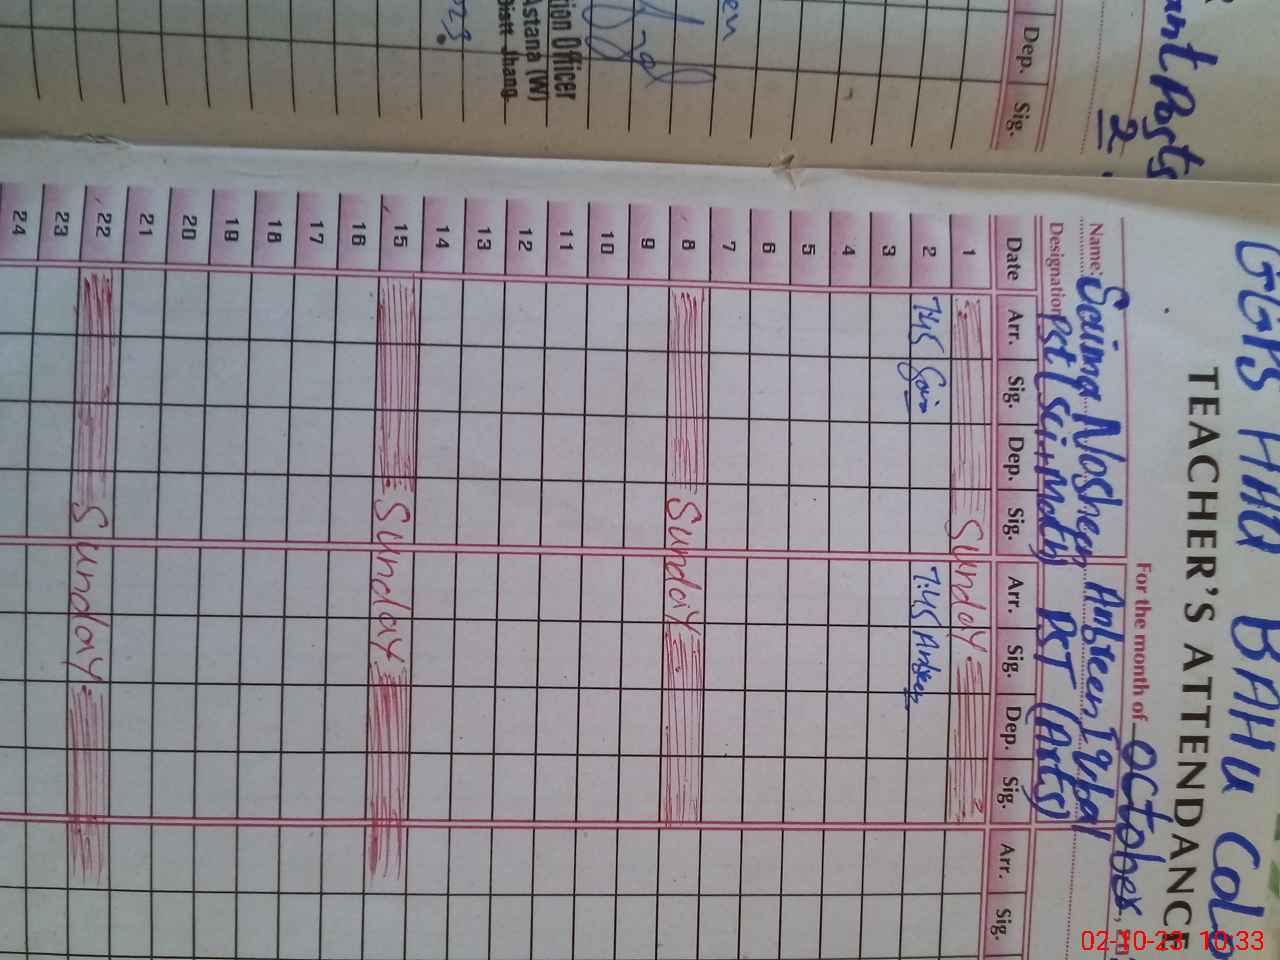 ant Posts
2
Dep. Sig.
en
ion Officer
Astana (W)
Distt Jhang.
GGPS HHU BAHU Colo
TEACHER'S ATTENDANCE
For the month of October, 20
Name: Saima Nosheen Ambreen Iqbal
Designation Pst (sci+Math) PST (Arts)
Date Arr. Sig. Dep. Sig. Arr. Sig. Dep. Sig. Arr. Sig.
1 Sunday
2 745 7:45
3
4
5
6
7
8 Sunday
9
10
11
12
13
14
15 Sunday
16
17
18
19
20
21
22 Sunday
23
24
02-10-23 10:33